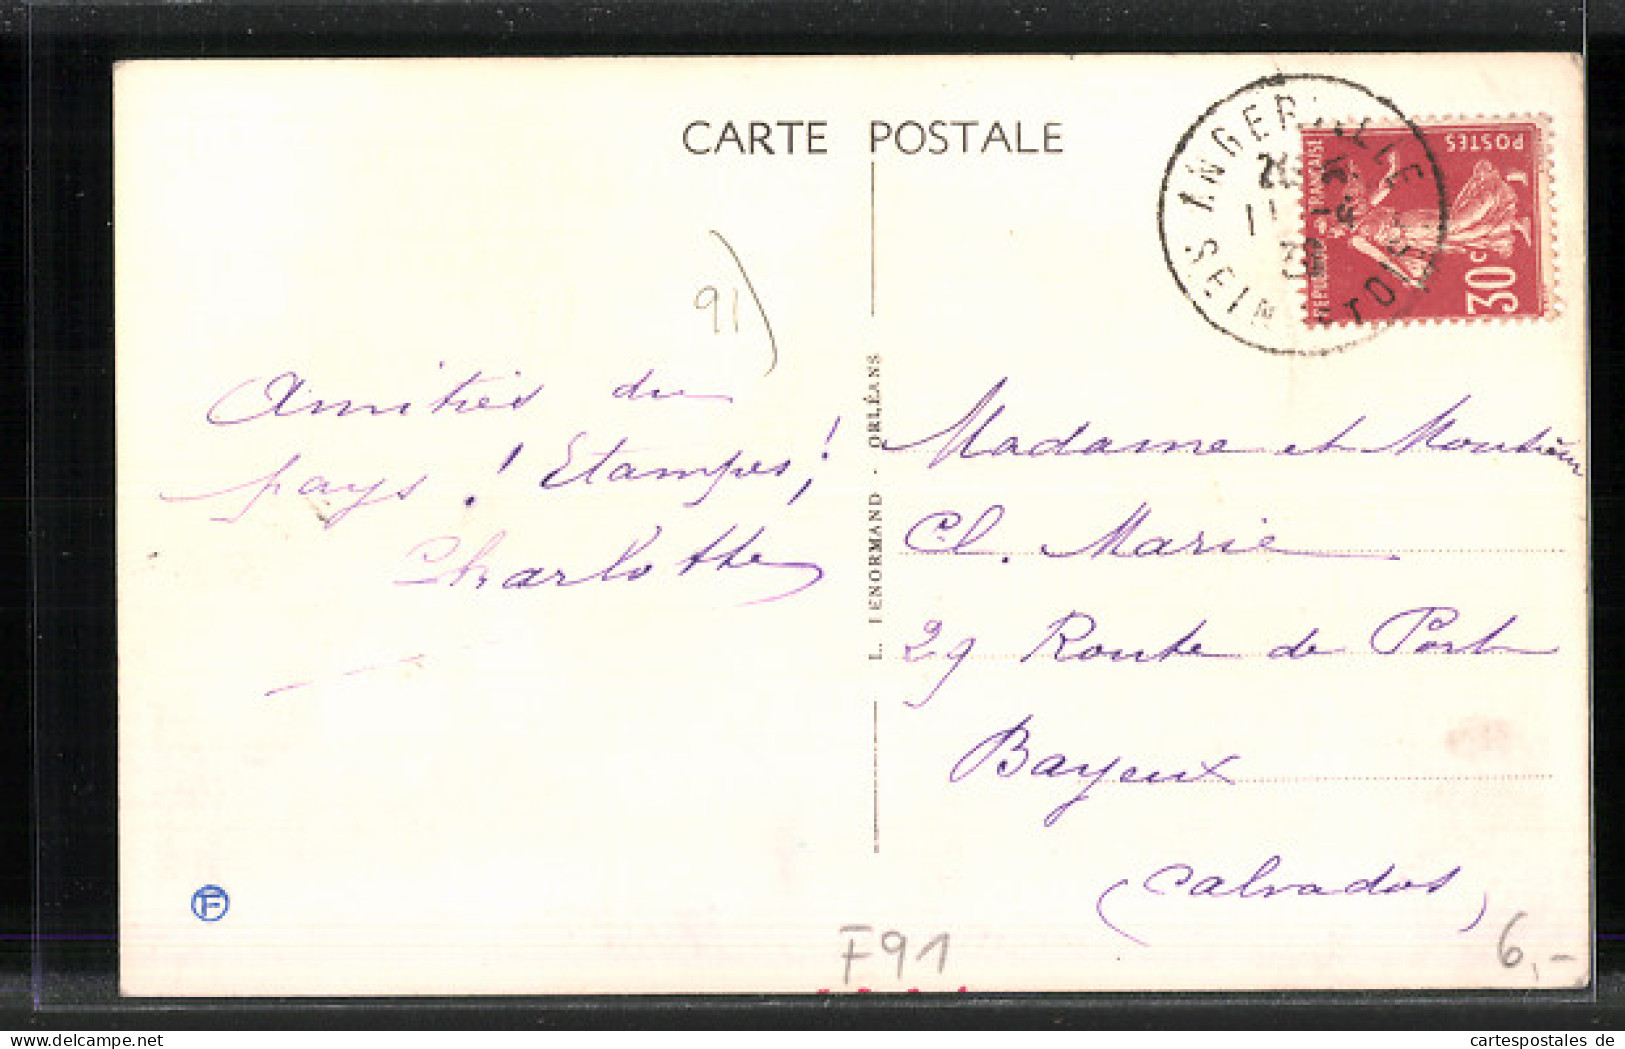 CARTE POSTALE
ANGERVILLE
SEINE ET OISE
POSTES
REPUBLIQUE FRANÇAISE
30c
91)
Amitiés du
pays ! Etampes,!
Charlotte
L. LENORMAND · ORLÉANS
Madame et Monsieur
Cl. Marie
29 Route de Port
Bayeux
(Calvados)
F91
6,-
cartespostales de